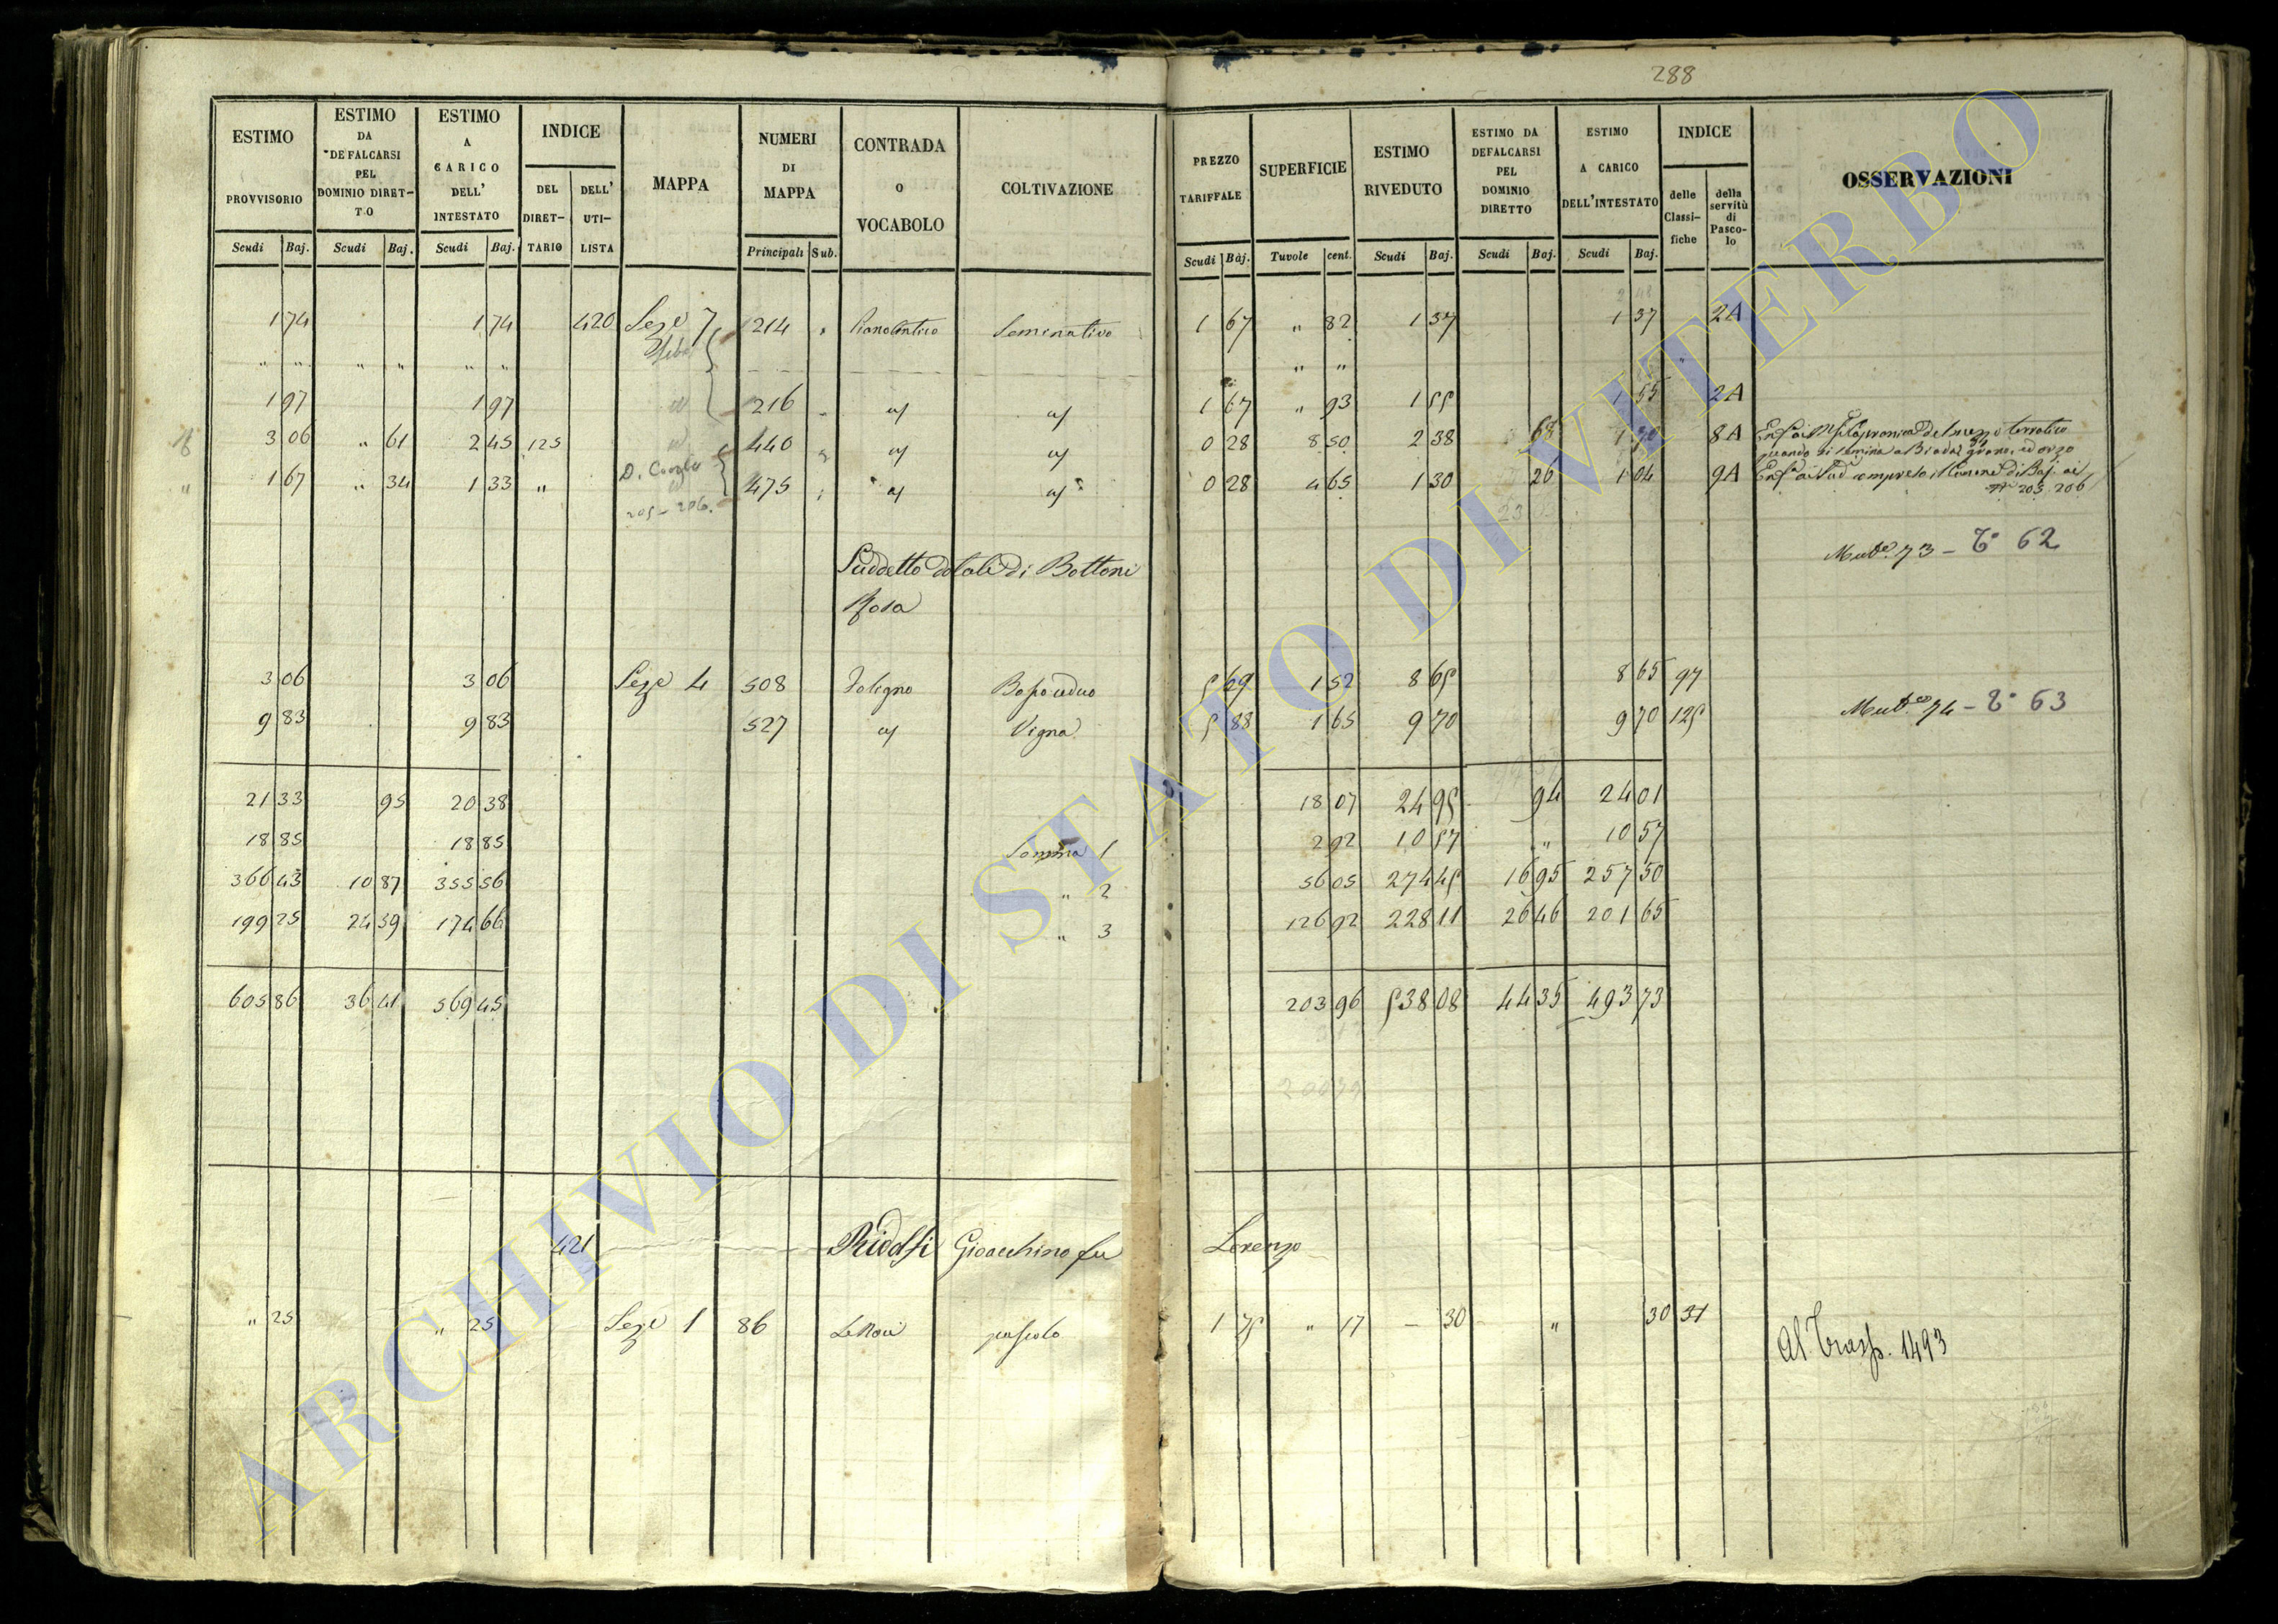 288
ESTIMO PROVVISORIO | ESTIMO DA DEFALCARSI PEL DOMINIO DIRETTO | ESTIMO A CARICO DELL' INTESTATO | INDICE DEL DIRETTARIO | DELL' UTILISTA | MAPPA | NUMERI DI MAPPA | CONTRADA O VOCABOLO | COLTIVAZIONE | PREZZO TARIFFALE | SUPERFICIE | ESTIMO RIVEDUTO | ESTIMO DA DEFALCARSI PEL DOMINIO DIRETTO | ESTIMO A CARICO DELL'INTESTATO | INDICE delle Classifiche | della servitù di Pascolo | OSSERVAZIONI
Scudi | Baj. | Scudi | Baj. | Scudi | Baj. | Principali | Sub. | Scudi | Baj. | Tavole | cent. | Scudi | Baj. | Scudi | Baj. | Scudi | Baj.
1 74 | 1 74 | 420 | Seze 7 | 214 | Seminativo | 1 67 | " 82 | 1 37 | 1 37 | 2A
" " | " " | " " | " "
1 97 | 1 97 | 216 | 1 67 | " 93 | 1 55 | 1 55 | 2A
3 06 | " 61 | 2 45 | 125 | 440 | 0 28 | 8 50 | 2 38 | 68 | 8A
1 67 | " 34 | 1 33 | " | 475 | 0 28 | 4 65 | 1 30 | 26 | 1 04 | 9A
205 - 206
205 206
Mut.e 73 - T.o 62
Suddetto dotali di Bottoni
Rosa
3 06 | 3 06 | Seze 4 | 508 | Foligno | Bosco ceduo | 5 69 | 1 52 | 8 65 | 8 65 | 97
9 83 | 9 83 | 527 | Vigna | 5 88 | 1 65 | 9 70 | 9 70 | 125 | Mut.e 74 - T.o 63
21 33 | 95 | 20 38 | 18 07 | 24 95 | 94 | 24 01
18 85 | 18 85 | Somma 1 | 2 92 | 10 57 | " | 10 57
366 43 | 10 87 | 355 56 | " 2 | 56 05 | 274 45 | 16 95 | 257 50
199 25 | 24 59 | 174 66 | " 3 | 126 92 | 228 11 | 26 46 | 201 65
605 86 | 36 41 | 569 45 | 203 96 | 538 08 | 44 35 | 493 73
421 | Ridolfi Gioacchino fu Lorenzo
" 25 | " 25 | Seze 1 | 86 | pascolo | 1 75 | " 17 | - 30 | " | 30 | 31 | Al Trasp. 1493
ARCHIVIO DI STATO DI VITERBO